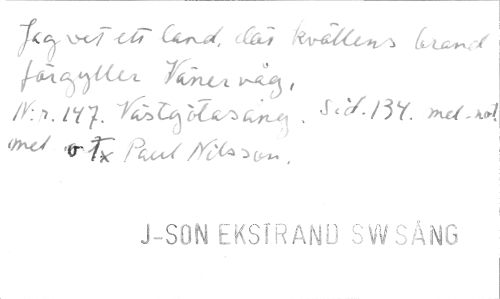 Jag vet ett land, där kvällens brand
förgyller Vänervåg,
N:r. 147. Västgötasång. Sid. 134. mel-not.
mel o Tx Paul Nilsson.
J-SON EKSTRAND SW SÅNG